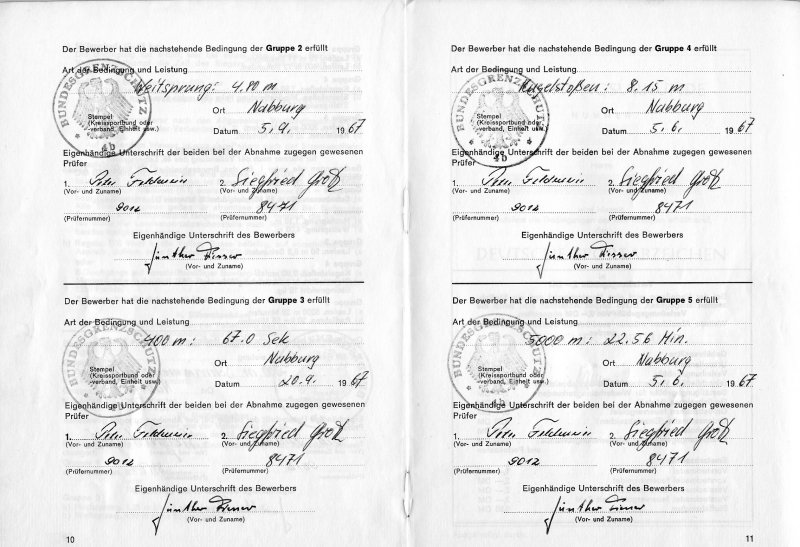 Der Bewerber hat die nachstehende Bedingung der Gruppe 2 erfüllt
Art der Bedingung und Leistung
Weitsprung: 4.80 m
BUNDESGRENZSCHUTZ
4b
Stempel
(Kreissportbund oder
-verband, Einheit usw.)
Ort Nabburg
Datum 5.9. 1967
Eigenhändige Unterschrift der beiden bei der Abnahme zugegen gewesenen
Prüfer
1. Peter
2. Siegfried Groß
(Vor- und Zuname) (Vor- und Zuname)
9012 8471
(Prüfernummer) (Prüfernummer)
Eigenhändige Unterschrift des Bewerbers
Günther
(Vor- und Zuname)
Der Bewerber hat die nachstehende Bedingung der Gruppe 3 erfüllt
Art der Bedingung und Leistung
400 m: 67.0 Sek
BUNDESGRENZSCHUTZ
Stempel
(Kreissportbund oder
-verband, Einheit usw.)
Ort Nabburg
Datum 20.9. 1967
Eigenhändige Unterschrift der beiden bei der Abnahme zugegen gewesenen
Prüfer
1. Peter
2. Siegfried Groß
(Vor- und Zuname) (Vor- und Zuname)
9012 8471
(Prüfernummer) (Prüfernummer)
Eigenhändige Unterschrift des Bewerbers
Günther
(Vor- und Zuname)
10
Der Bewerber hat die nachstehende Bedingung der Gruppe 4 erfüllt
Art der Bedingung und Leistung
Kugelstoßen: 8.15 m
BUNDESGRENZSCHUTZ
4b
Stempel
(Kreissportbund oder
-verband, Einheit usw.)
Ort Nabburg
Datum 5.6. 1967
Eigenhändige Unterschrift der beiden bei der Abnahme zugegen gewesenen
Prüfer
1. Peter
2. Siegfried Groß
(Vor- und Zuname) (Vor- und Zuname)
9012 8471
(Prüfernummer) (Prüfernummer)
Eigenhändige Unterschrift des Bewerbers
Günther
(Vor- und Zuname)
Der Bewerber hat die nachstehende Bedingung der Gruppe 5 erfüllt
Art der Bedingung und Leistung
5000 m: 22.56 Min.
BUNDESGRENZSCHUTZ
4b
Stempel
(Kreissportbund oder
-verband, Einheit usw.)
Ort Nabburg
Datum 5.6. 1967
Eigenhändige Unterschrift der beiden bei der Abnahme zugegen gewesenen
Prüfer
1. Peter
2. Siegfried Groß
(Vor- und Zuname) (Vor- und Zuname)
9012 8471
(Prüfernummer) (Prüfernummer)
Eigenhändige Unterschrift des Bewerbers
Günther
(Vor- und Zuname)
11